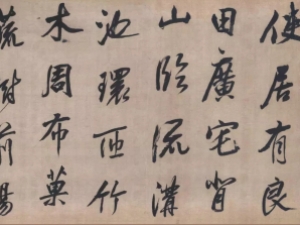 使居有良
田廣宅背
山臨流溝
池環匝竹
木周布菓
蔬樹前場